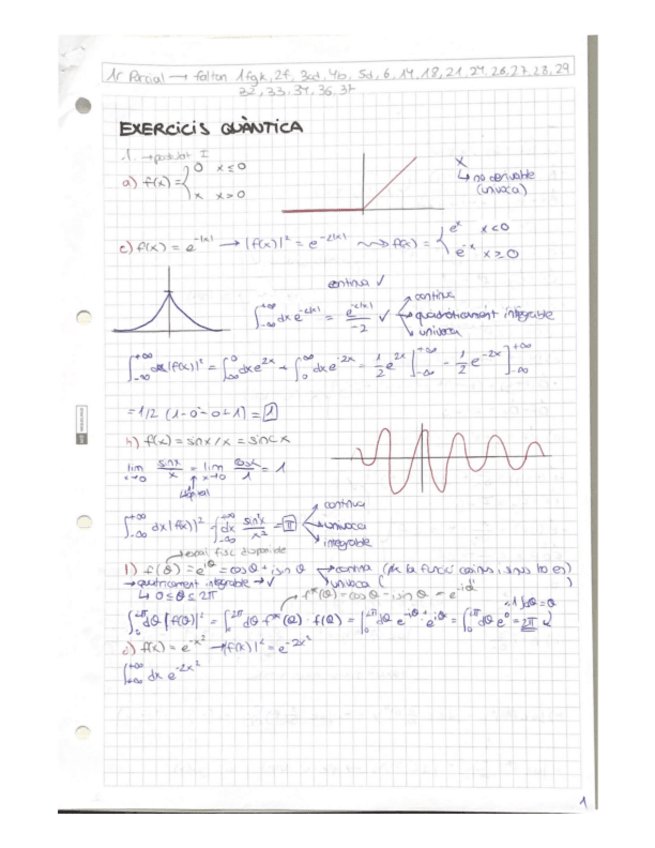 1r Parcial → falten 1fgk, 2f, 3cd, 4b, 5d, 6, 14, 18, 21, 24, 26, 27, 28, 29
32, 33, 34, 36, 37
EXERCICIS QUÀNTICA
1. → postulat I
a) f(x) = { 0 x ≤ 0
x x > 0
x
↳ no derivable
(unívoca)
e) f(x) = e^-|x| → |f(x)|² = e^-2|x| ⇝ f(x) = { e^x x < 0
e^-x x ≥ 0
contínua ✓
∫_-∞^+∞ dx e^-2|x| = e^-2|x| / -2 ✓
→ contínua
→ quadràticament integrable
→ unívoca
∫_-∞^+∞ dx |f(x)|² = ∫_∞^0 dx e^2x + ∫_0^∞ dx e^-2x = 1/2 e^2x ]_-∞^+∞ - 1/2 e^-2x ]_-∞^+∞
= 1/2 (1-0-0+1) = 1
h) f(x) = sinx/x = sinc x
lim x→0 sinx/x = lim x→0 cosx/1 = 1
∫_-∞^+∞ dx |f(x)|² = ∫_-∞^+∞ dx sin²x/x² = π
→ contínua
→ unívoca
→ integrable
l) f(θ) = e^iθ = cosθ + i sinθ → contínua
→ unívoca
↳ 0 ≤ θ ≤ 2π
f*(θ) = cosθ - i sinθ = e^-iθ
∫_0^2π dθ |f(θ)|² = ∫_0^2π dθ f*(θ) · f(θ) = ∫_0^2π dθ e^-iθ · e^iθ = ∫_0^2π dθ e^0 = 2π
c) f(x) = e^-x² → |f(x)|² = e^-2x²
∫_+∞^+∞ dx e^-2x²
1